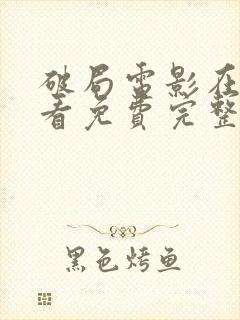 破局电影在
看免费完整
黑色烤鱼